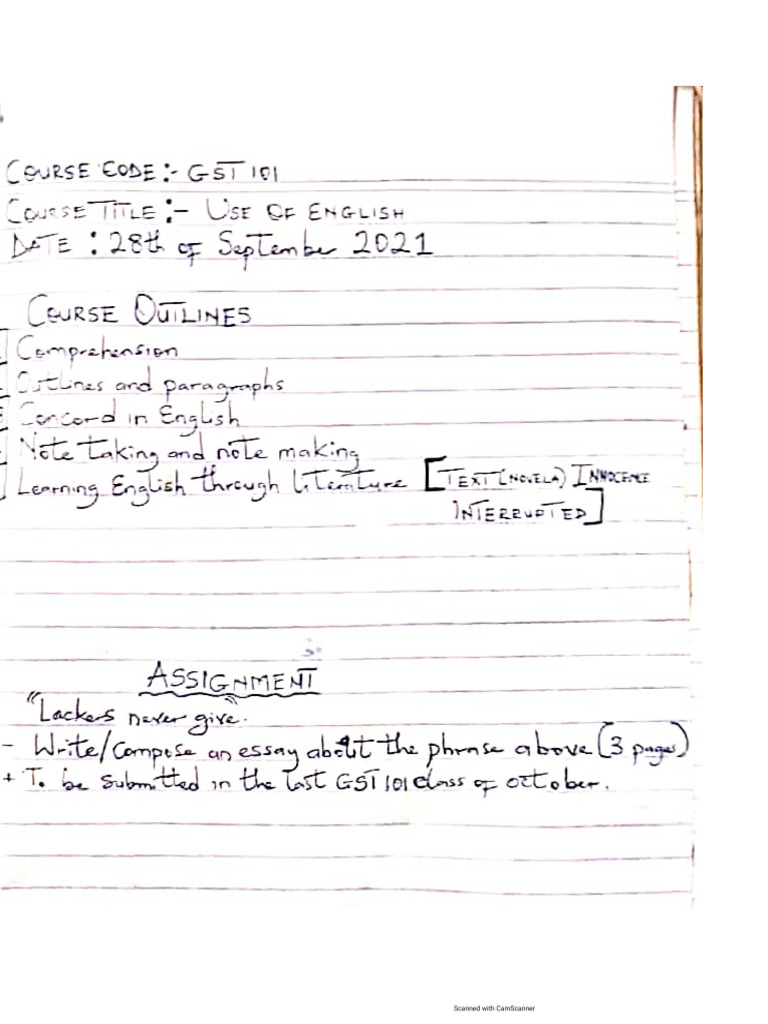 COURSE CODE:- GST 101
COURSE TITLE:- USE OF ENGLISH
DATE: 28th of September 2021
COURSE OUTLINES
Comprehension
Outlines and paragraphs
Concord in English
Note taking and note making
Learning English through literature [TEXT (NOVELA) INNOCENCE
INTERRUPTED]
ASSIGNMENT
"Lackers never give."
- Write/Compose an essay about the phrase above (3 pages)
+ To be submitted in the last GST 101 class of october.
Scanned with CamScanner